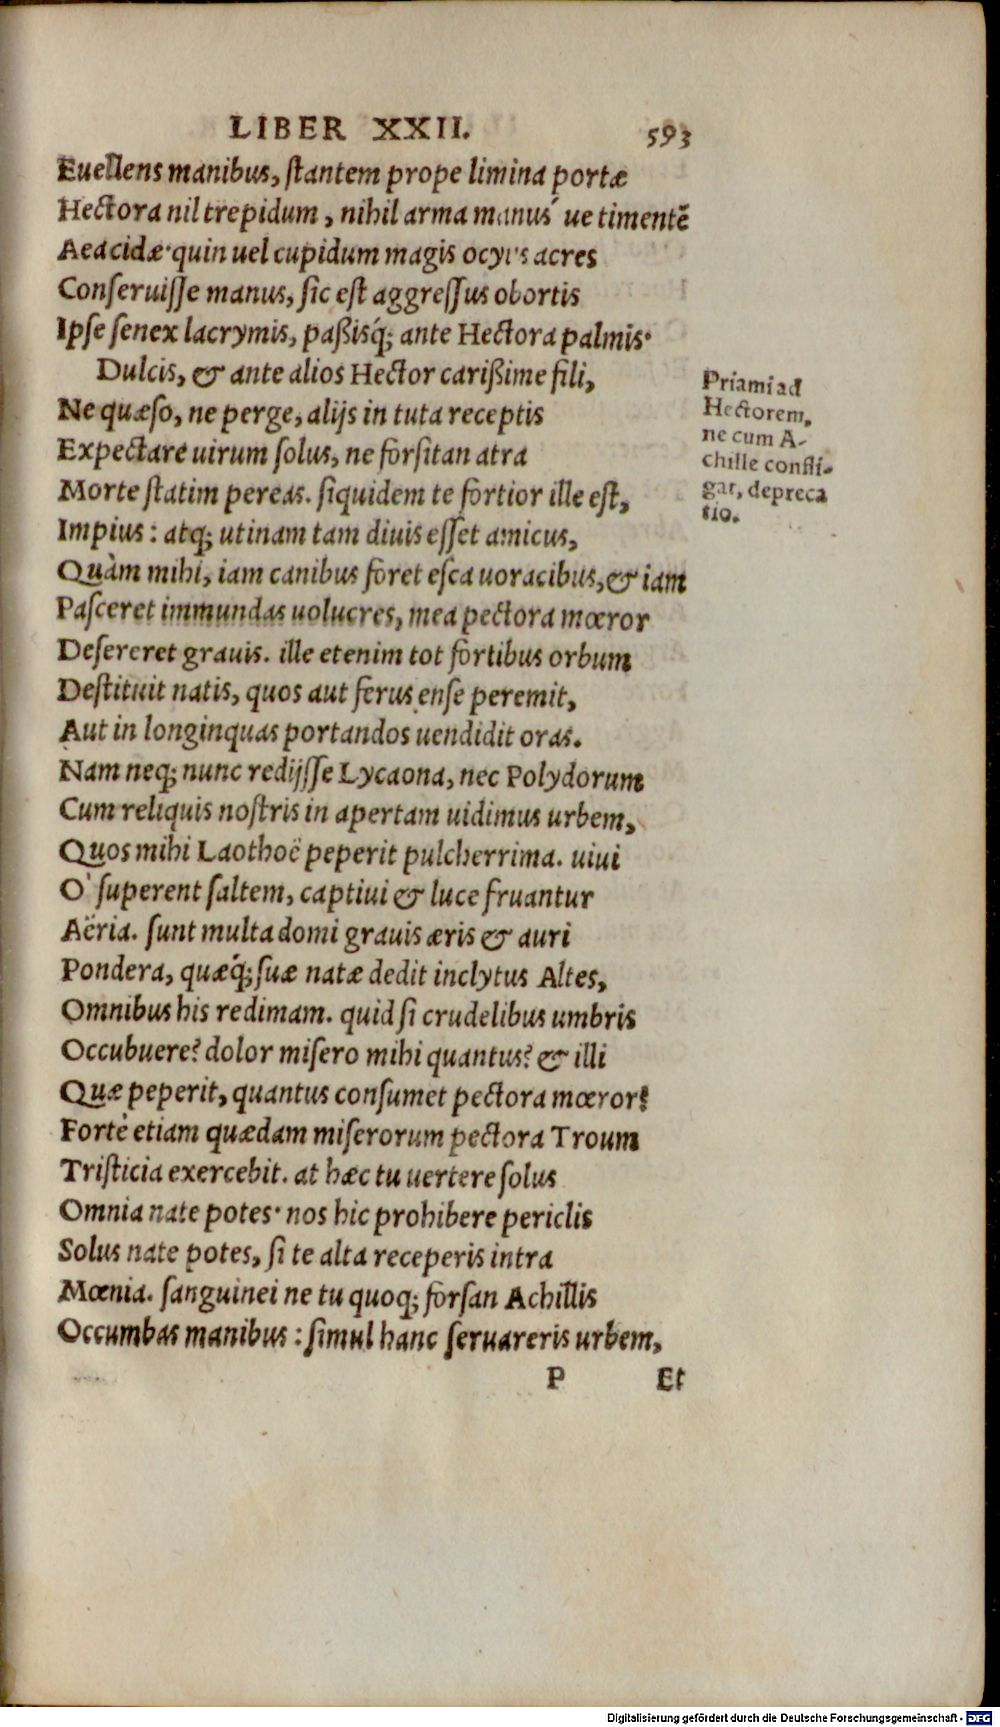 LIBER XXII. 593
Euellens manibus, stantem prope limina portæ
Hectora nil trepidum, nihil arma manus´ ue timentē
Aeacidæ·quin uel cupidum magis ocyus acres
Conseruisse manus, sic est aggressus obortis
Ipse senex lacrymis, paßisq́; ante Hectora palmis·
Dulcis, & ante alios Hector carißime fili,
Ne quæso, ne perge, alijs in tuta receptis
Expectare uirum solus, ne forsitan atra
Morte statim pereas. siquidem te fortior ille est,
Impius: atq; utinam tam diuis esset amicus,
Quàm mihi, iam canibus foret esca uoracibus, & iam
Pasceret immundas uolucres, mea pectora mœror
Desereret grauis. ille etenim tot fortibus orbum
Destituit natis, quos aut ferus ense peremit,
Aut in longinquas portandos uendidit oras.
Nam neq; nunc redijsse Lycaona, nec Polydorum
Cum reliquis nostris in apertam uidimus urbem,
Quos mihi Laothoë peperit pulcherrima. uiui
O' superent saltem, captiui & luce fruantur
Aëria. sunt multa domi grauis æris & auri
Pondera, quæq́; suæ natæ dedit inclytus Altes,
Omnibus his redimam. quid si crudelibus umbris
Occubuere? dolor misero mihi quantus? & illi
Quæ peperit, quantus consumet pectora mœror?
Fortè etiam quædam miserorum pectora Troum
Tristicia exercebit. at hæc tu uertere solus
Omnia nate potes· nos hic prohibere periclis
Solus nate potes, si te alta receperis intra
Mœnia. sanguinei ne tu quoq; forsan Achillis
Occumbas manibus: simul hanc seruareris urbem,
P Et
Priami ad
Hectorem,
ne cum A-
chille confli-
gat, depreca
tio.
Digitalisierung gefördert durch die Deutsche Forschungsgemeinschaft - DFG